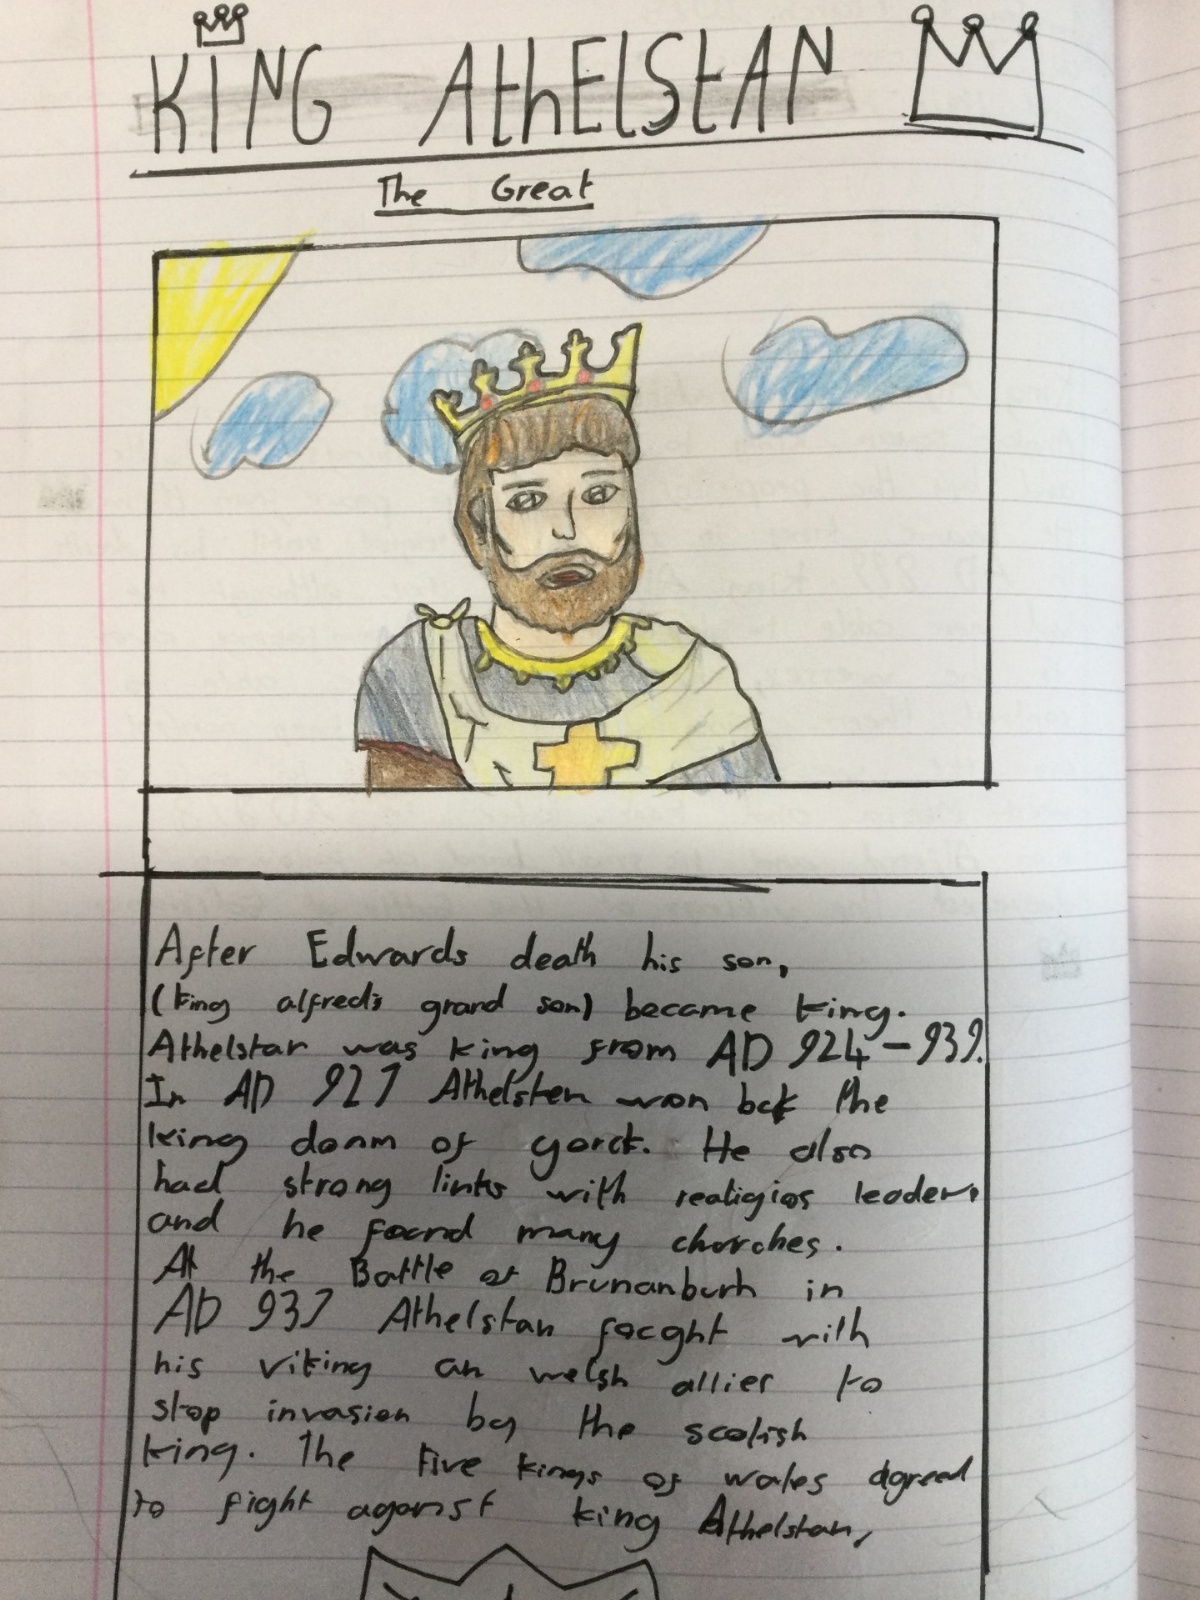 KING AthElStAN
The Great
After Edwards death his son,
(king alfred's grand son) became king.
Athelstan was king from AD 924-939.
In AD 927 Athelsten won bck the
king donm of yorck. He also
had strong links with realigios leaders
and he foond many chorches.
At the Battle of Brunanburh in
AD 937 Athelstan fooght with
his viking an welsh allies to
stop invasion by the scotish
king. The Five kings of wales agreed
to fight agonst king Athelstan,